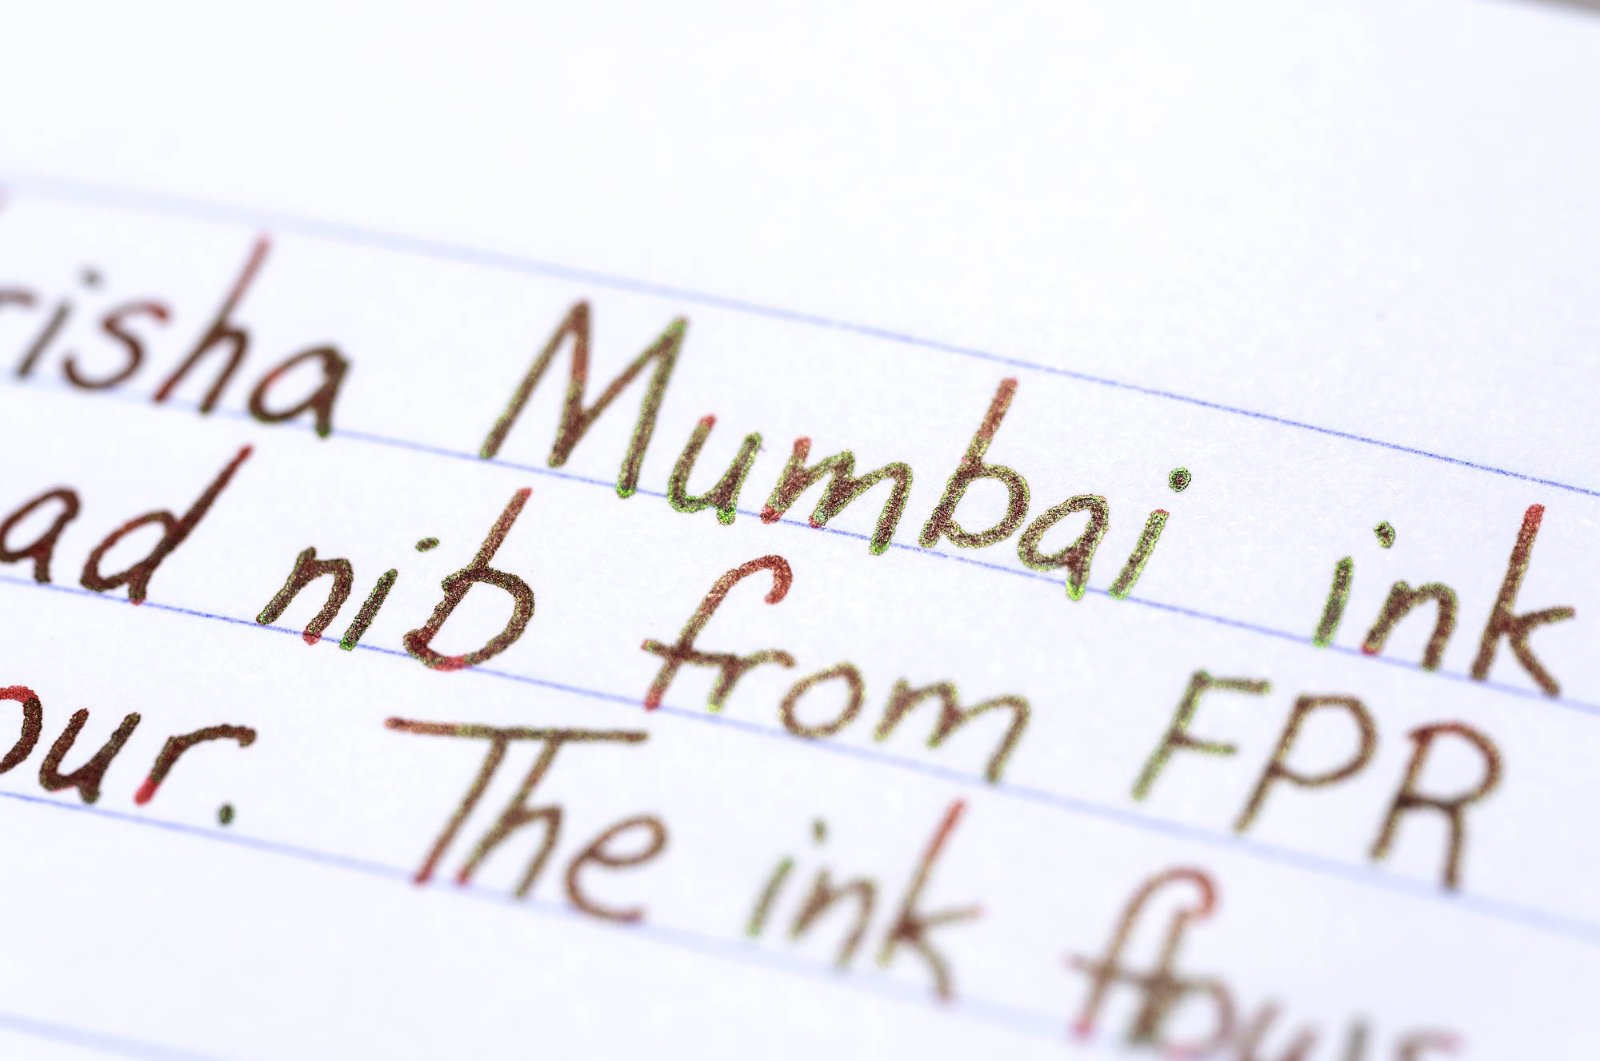 risha Mumbai ink
ad nib from FPR
our. The ink flows